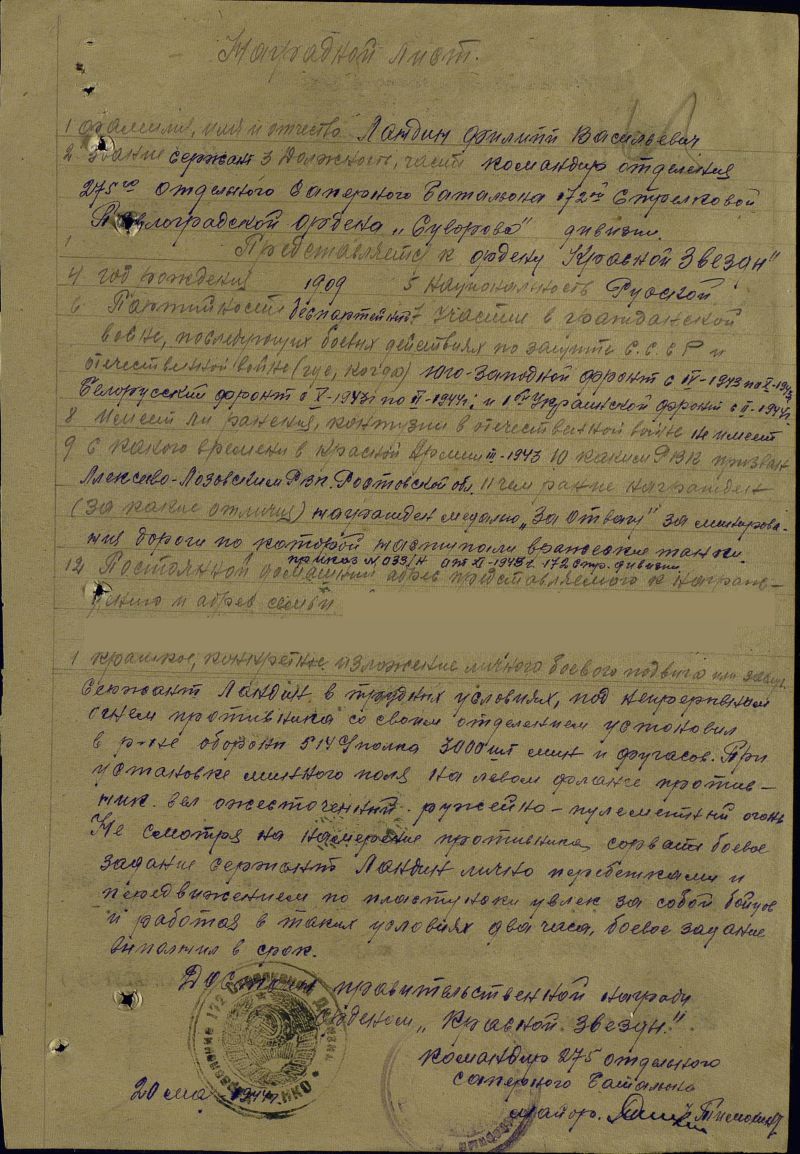 Наградной лист.
1 фамилия, имя и отчество Ландин Филипп Васильевич
2 звание сержант 3 Должность, часть командир отделения
275го отдельного Саперного Батальона 172й Стрелковой
Павлоградской ордена „Суворова" дивизии.
Представляется к ордену „Красной Звезды"
4 год рождения 1909 5 национальность Руской
6 Партийность беспартейный 7 Участие в гражданской
войне, последующих боевых действиях по защите С.С.С Р и
отечественной войне (где, когда) юго-западной фронт с IV-1943 по V-1943
Белорусский фронт с V-1943г по II-1944г. и 1й Украинской фронт с II-1944г.
8 Имеет ли ранения, контузии в отечественной войне не имеет
9 С какого времени в Красной Армии III-1943 10 каким РВК призван
Алексево-Лозовским РВК. Ростовской обл. 11 чем ранее награжден
(за какие отличия) награжден медалю „За Отвагу" за минирова-
ния дороги по которой наступали вражеские танки.
приказ N 033/н от XI-1943г. 172 стр. дивизии
12 Постоянной домашний адрес представляемого к награж-
дению и адрес семьи
1 краткое, конкретное изложение личного боевого подвига или заслуг
Сержант Ландин в трудных условиях, под непрерывным
огнем противника со своим отделением установил
в р-не обороны 514 С/полка 3000 шт мин и фугасов. При
установке минного поля на левом фланге против-
ник вел ожесточенный ружейно-пулеметный огонь
Не смотря на намерение противника сорвать боевое
задание сержант Ландин лично перебежками и
передвижением по пластунски увлек за собой бойцов
и работая в таких условиях два часа, боевое задание
выполнил в срок.
Достоин правительственной награды
Орденом „Красной Звезды".
командир 275 отдельного
саперного Батальона
20 мая 1944г.
майор Тимохин